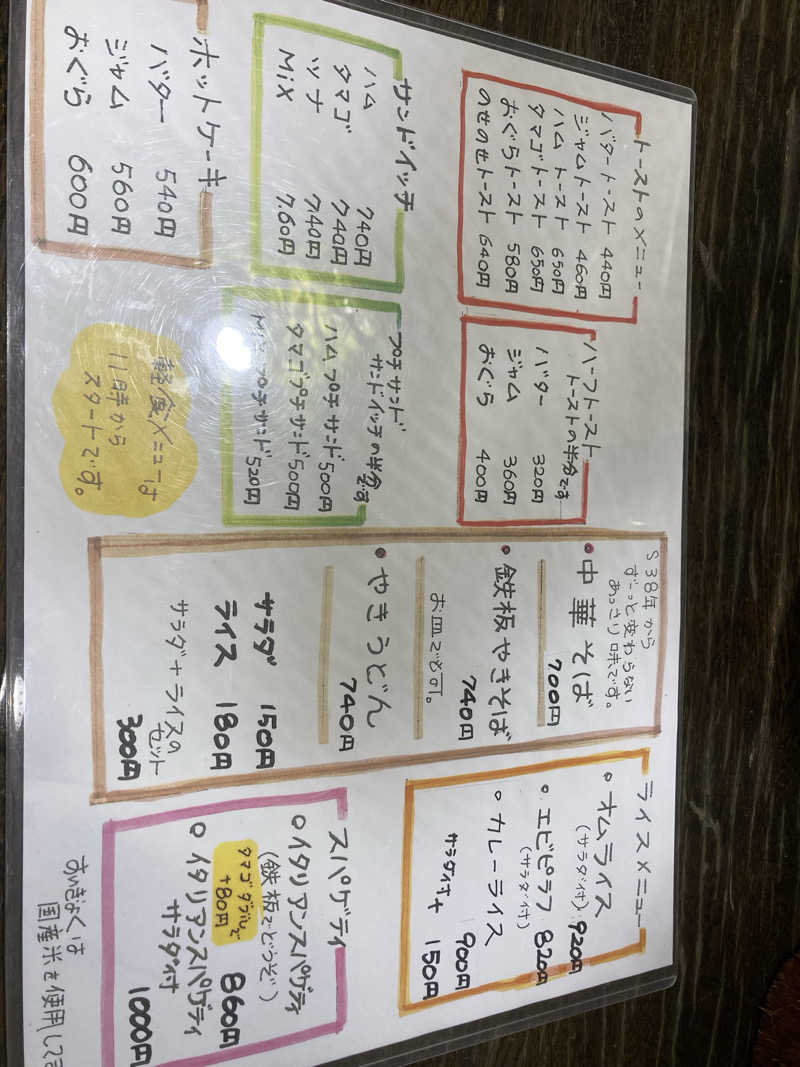 トーストのメニュー
バタートースト 440円
ジャムトースト 460円
ハムトースト 650円
タマゴトースト 650円
おぐらトースト 580円
のせのせトースト 640円
ハーフトースト
トーストの半分です
バター 320円
ジャム 360円
おぐら 400円
サンドイッチ
ハム 740円
タマゴ 740円
ツナ 740円
MiX 760円
プチサンド
サンドイッチの半分です
ハムプチサンド 500円
タマゴプチサンド 500円
Mixプチサンド 520円
ホットケーキ
バター 540円
ジャム 560円
おぐら 600円
軽食メニューは
11時から
スタートです。
S38年から
ずーっと変わらない
あっさり味です。
中華そば
700円
鉄板やきそば
740円
お皿で
やきうどん
740円
サラダ 150円
ライス 180円
サラダ+ライスの
セット
300円
ライスメニュー
オムライス
(サラダ付) 920円
エビピラフ 820円
(サラダ付)
カレーライス
900円
サラダ付+ 150円
スパゲティ
イタリアンスパゲティ
(鉄板でどうぞ)
860円
タマゴダブルで
+80円
イタリアンスパゲティ
サラダ付
1000円
国産米を使用して